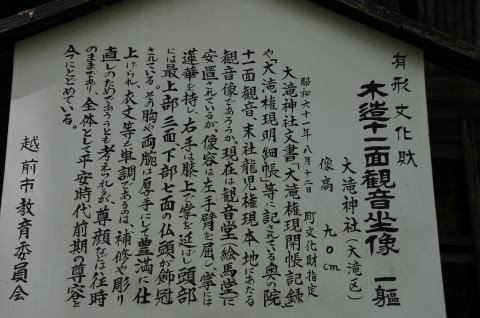 有形文化財
木造十一面観音坐像 一軀
大滝神社(大滝区)
像高 九〇cm
昭和六十一年八月十二日 町文化財指定
大滝神社文書「大滝権現開帳記録」
や、「大滝権現明細帳」等に記されている奥の院
十一面観音、末社龍児権現本地にあたる
観音像であろうか。現在は観音堂(絵馬堂)に
安置されているが、像容は左手臂を屈し、掌には
蓮華を持し、右手は膝上で掌を延ばし頭部
には最上部三面、下部七面の仏頭が飾冠
されている。その胸や両腕は厚手にして豊満に仕
上げられ、衣文等が単調であるのは、補修や彫り
直しのためであろうとも考えられるが、尊顔などは往時
のままであり、全体として平安時代前期の尊容を
今にとどめている。
越前市教育委員会